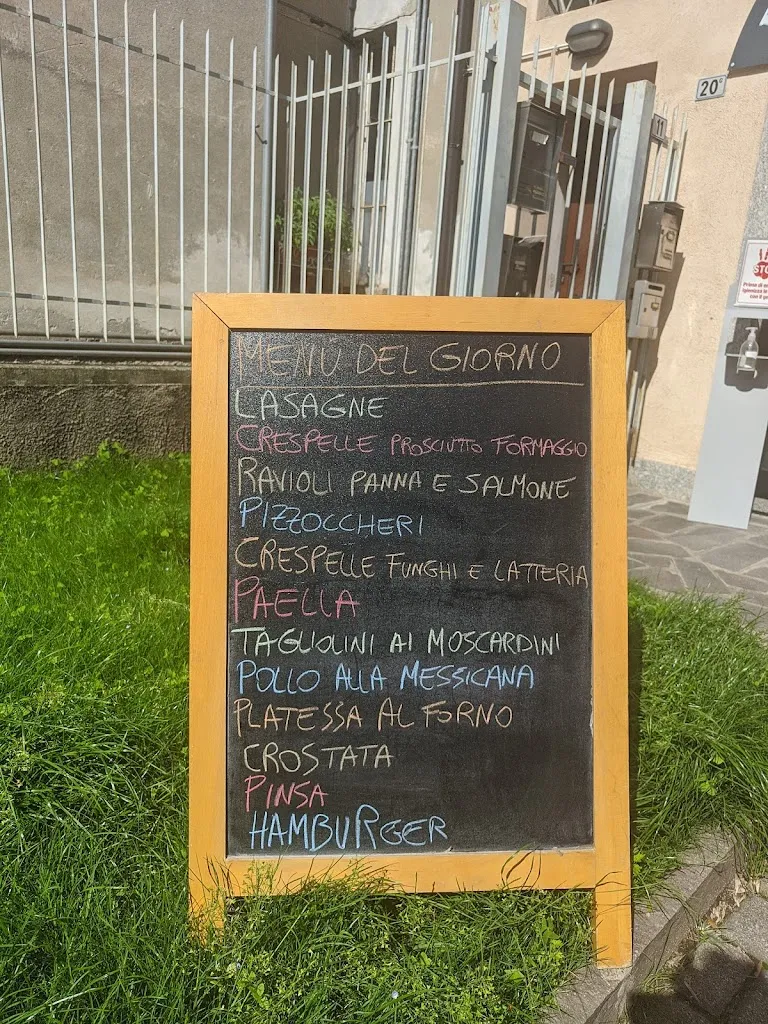 20c
11
STO
Prima di e
igienizza le
con il ge
MENÙ DEL GIORNO
LASAGNE
CRESPELLE PROSCIUTTO FORMAGGIO
RAVIOLI PANNA E SALMONE
PIZZOCCHERI
CRESPELLE FUNGHI E LATTERIA
PAELLA
TAGLIOLINI AI MOSCARDINI
POLLO ALLA MESSICANA
PLATESSA AL FORNO
CROSTATA
PINSA
HAMBURGER